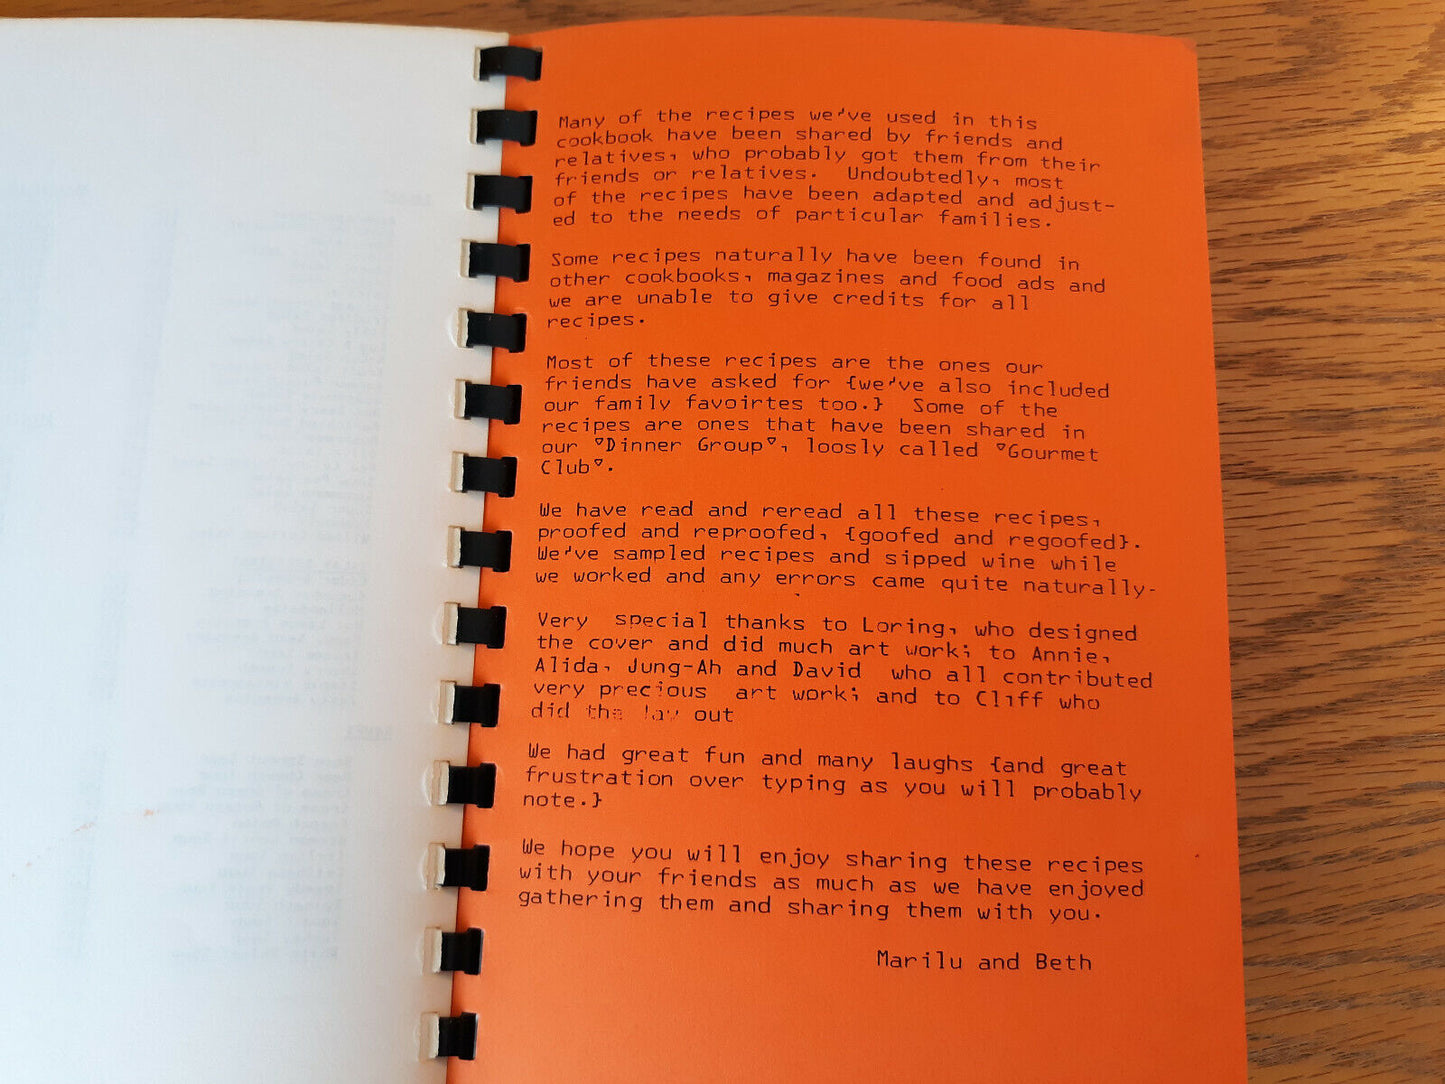 Many of the recipes we've used in this
cookbook have been shared by friends and
relatives, who probably got them from their
friends or relatives. Undoubtedly, most
of the recipes have been adapted and adjust-
ed to the needs of particular families.
Some recipes naturally have been found in
other cookbooks, magazines and food ads and
we are unable to give credits for all
recipes.
Most of these recipes are the ones our
friends have asked for {we've also included
our family favoirtes too.} Some of the
recipes are ones that have been shared in
our "Dinner Group", loosly called "Gourmet
Club".
We have read and reread all these recipes,
proofed and reproofed, {goofed and regoofed}.
We've sampled recipes and sipped wine while
we worked and any errors came quite naturally.
Very special thanks to Loring, who designed
the cover and did much art work; to Annie,
Alida, Jung-Ah and David who all contributed
very precious art work; and to Cliff who
did the lay out
We had great fun and many laughs {and great
frustration over typing as you will probably
note.}
We hope you will enjoy sharing these recipes
with your friends as much as we have enjoyed
gathering them and sharing them with you.
Marilu and Beth